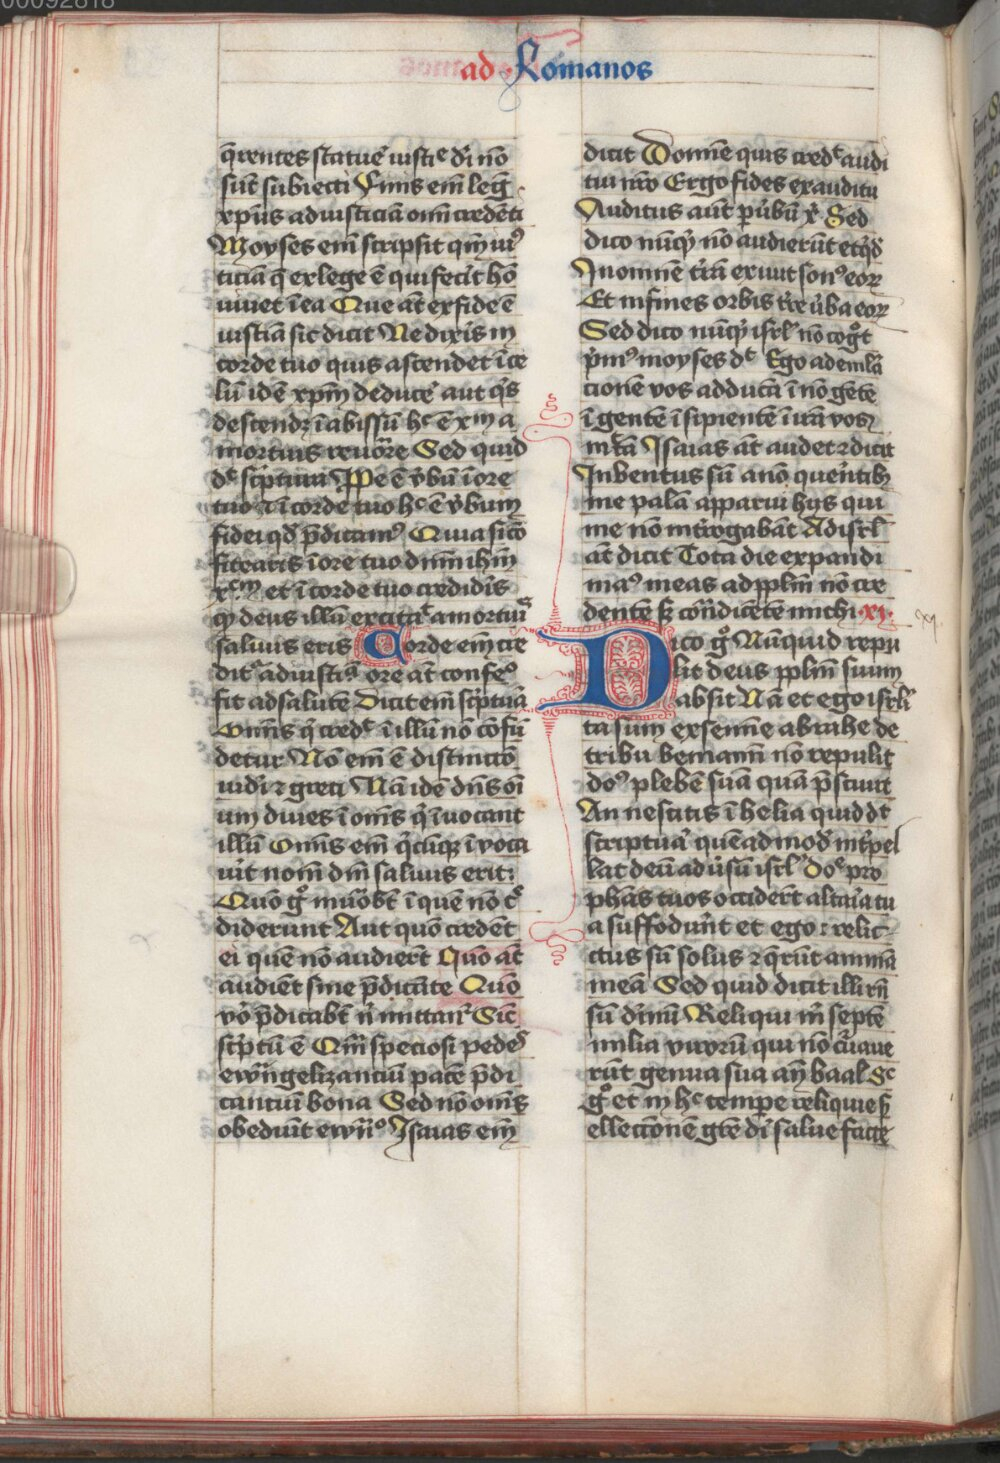 00092818
ad Romanos
q̄rentes statue᷑ iustic᷑e d̓i nō
sūt subiecti Finis em̄ leḡ
xp̄us ad iusticiā om̄i credēti
Moyses em̄ scripsit qm̄ ius
ticiā q̄ ex lege ē qui fecit hō
viuet ī ea Que at̄ ex fide ē
iusticiā sic dicit Ne dixis̄ in
corde tuo quis ascendet ī ce
lū id ē xp̄m deduce᷑ aut q̓s
descendꝫ ī abissū hͨ ē xm̄ a
mortuis reuo̓re Sed quid
dt̄ sc̓ptura Ꝓpe ē v̓bū ī ore
tuo ⁊ ī corde tuo hͨ ē v̓bum
fidei qd̄ p̄dicamꝰ Quia si cō
fitearis ī ore tuo dn̄m ih̄m
x̄m et ī corde tuo credidis̄
ꝙ deus illū excitat̓ a mortuis̄
saluus eris Corde em̄ cre
dit᷑ ad iustiā ore at̄ confeº
fit ad salutē Dicit em̄ sc̓ptura
Om̄is q̓ credt̄ ī illū nō cōfū
detur Nō em̄ ē distinctō
iudi ⁊ greci Nā idē dn̄s oī
um diues ī om̄s q̓ īuocant
illū Om̄is em̄ q̓cūqꝫ īuoca
u̓it nom̄ dn̄i saluus erit:
Quō gͦ īuōbt̄ ī quē nō c̓
diderunt Aut quō credēt
ei quē nō audiert̄ Quō at̄
audiēt sine p̄dicāte Quō
vͦo p̄dicabt̄ n̓ mittant᷑ Sic̄
sc̓ptū ē Qm̄ speciosi pedes̄
ewāngelizanciū pacē p̄di
canciū bona Sed nō om̄s
obediūt ewn̄ᵒ Isaias em̄
dicit Domine quis credt̄ audi
tui nr̄o Ergo fides ex auditu
Auditus aūt p̓ v̓bū x̓ Sed
dico nūqͥd nō audierūt et q̓dē
In omnē tr̄ā exiuit sonꝰ eoꝝ
Et in fines orbis tr̄e v̓ba eoꝝ
Sed dico nūqͥd isrl̄ nō cogͦt
p̓mꝰ moyses dt̄ Ego ad emlā
cionē vos adducā ī nō gētē
ī gentē īsipientē ī irā vos
mittā Isaias at̄ audet ⁊ dicit
Inuentus sū a nō quer̄tibꝫ
me palā apparui hijs qui
me nō int̓rogabāt Ad isrl̄
at̄ dicit Tota die expandi
maꝰ meas ad pplm̄ nō cre
dentē sꝫ cōn̓dicētē michi · xi ·
xj
Dico gͦ Nūnquid repu
lit deus pplm̄ suum
absit Nā et ego isrl̄i
ta sum ex semīe abrahe de
tribu beniamī nō repulit
dꝰ plebē suā quā p̄sciuit
An nescitis ī helia quid dt̄
scriptura᷑ quēadmod̄ int̓pel
lat deū adu̓sū isrl̄ Doᵉ pro
phās tuos occidert̄ altaria tu
a suffodūt et ego : relic
ctus sū solus ⁊ q̓rūt animā
meā Sed quid dicit illi rn̄
sū d̓inū Reliqui m̓ septē
milia virorū qui nō cu̓aue
rūt genua sua an̄ baal Sͨ
gͦ et in hͨ tempe reliquie s̓
ellectionē grē d̓i salue facte